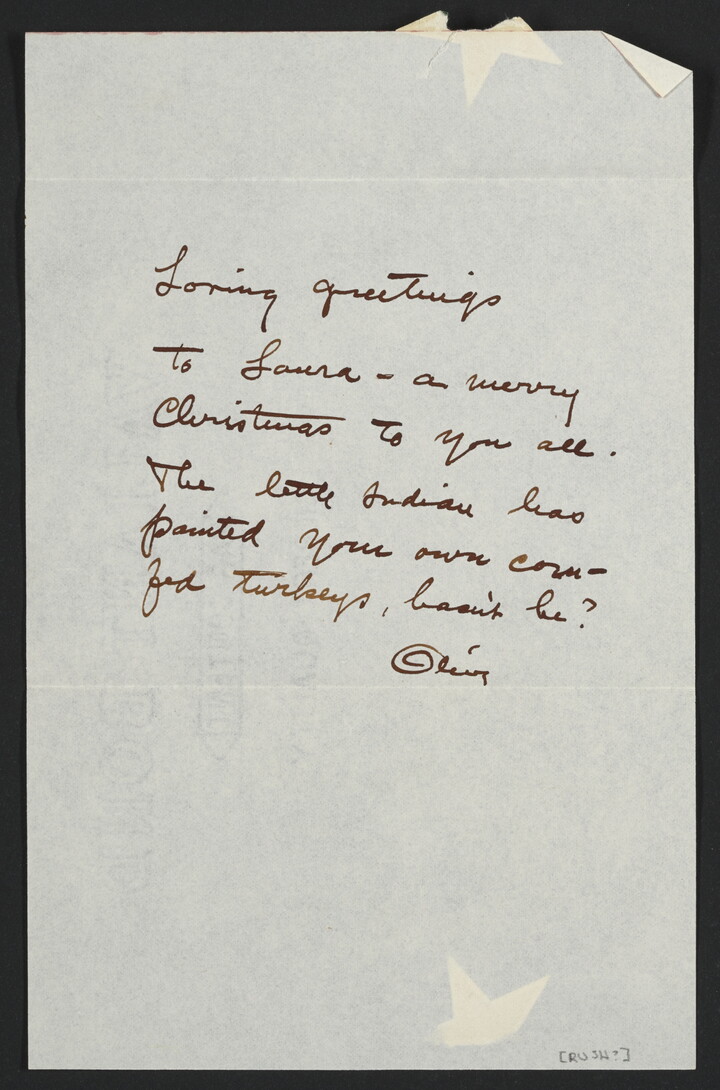 Loving greetings
to Laura - a merry
Christmas to you all.
The little Indian has
painted your own corn-
fed turkeys, hasn't he?
Olive
[RUSH?]